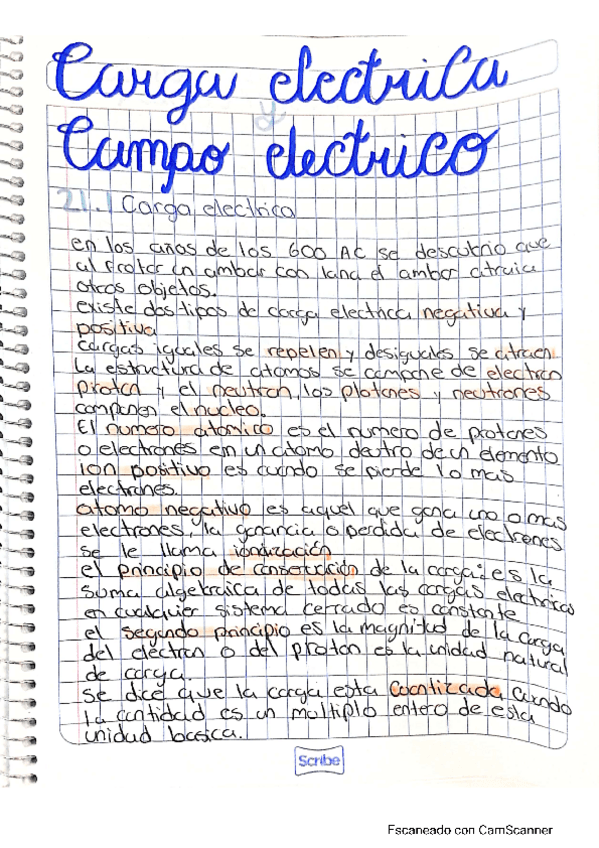 Carga electrica
y
Campo electrico
21.1 Carga electrica
en los años de los 600 AC se descubrio que
al frotar un ambar con lana el ambar atraia
otros objetos.
existe dos tipos de carga electrica negativa y
positiva
cargas iguales se repelen y desiguales se atraen
La estructura de atomos se compone de electron
proton y el neutron, los protones y neutrones
componen el nucleo.
El numero atomico es el numero de protones
o electrones en un atomo dentro de un elemento
ion positivo es cuando se pierde 1 o mas
electrones.
atomo negativo es aquel que gana uno o mas
electrones, la ganancia o perdida de electrones
se le llama ionización
el principio de conservación de la carga: es la
suma algebraica de todas las cargas electricas
en cualquier sistema cerrado es constante
el segundo principio es la magnitud de la carga
del electron o del proton es la unidad natural
de carga.
se dice que la carga esta Cuantizada, cuando
la cantidad es un multiplo entero de esta
unidad basica.
Scribe
Escaneado con CamScanner